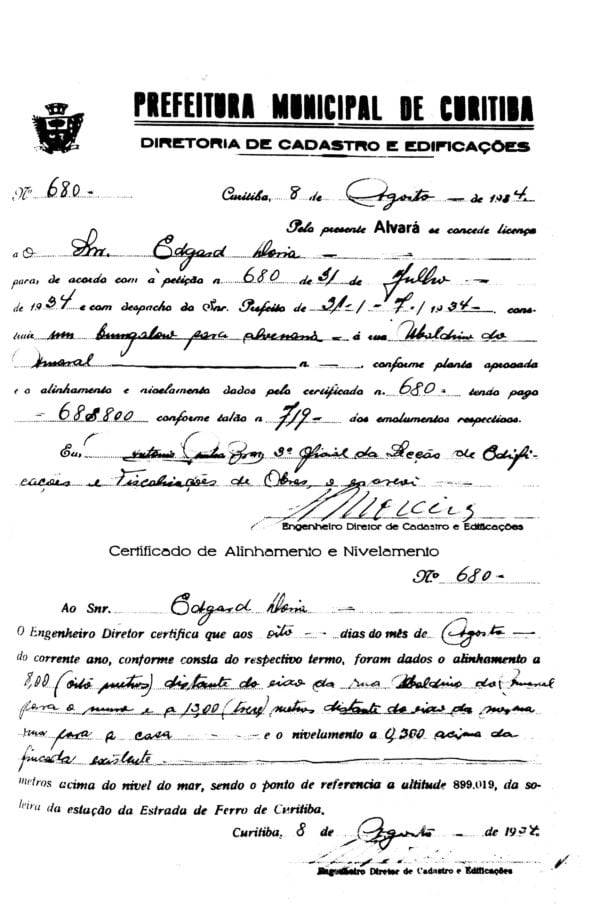 PREFEITURA MUNICIPAL DE CURITIBA
DIRETORIA DE CADASTRO E EDIFICAÇÕES
Nº 680-
Curitiba, 8 de Agosto - de 1934.
Pelo presente Alvará se concede licença
a O Snr. Edgard Doria
para, de acordo com a petição n 680 de 31 de Julho -
de 1934 e com despacho do Snr. Prefeito de 31-1-7-1934-, cons-
truir um bungalow para alvenaria - á rua Ubaldino do
Amaral n - , conforme planta aprovada
e o alinhamento e nivelamento dados pelo certificado n. 680- tendo pago
- 68$800 conforme talão n 719- dos emolumentos respectivos.
Eu, Antonio 3º oficial da Secção de Edifi-
cações e Fiscalizações de Obras, o escrevi -
Engenheiro Diretor de Cadastro e Edificações
Certificado de Alinhamento e Nivelamento
Nº 680-
Ao Snr. Edgard Doria -
O Engenheiro Diretor certifica que aos oito - dias do mês de Agosto -
do corrente ano, conforme consta do respectivo termo, foram dados o alinhamento a
8,00 (oito metros) distante do eixo da rua Ubaldino do Amaral
para o muro e a 13,00 (treze) metros distante do eixo da mesma
rua para a casa - e o nivelumento a 0,300 acima da
fincada existente
metros acima do nivel do mar, sendo o ponto de referencia a altitude 899.019, da so-
leira da estação da Estrada de Ferro de Curitiba.
Curitiba, 8 de Agosto - de 1934.
Engenheiro Diretor de Cadastro e Edificações